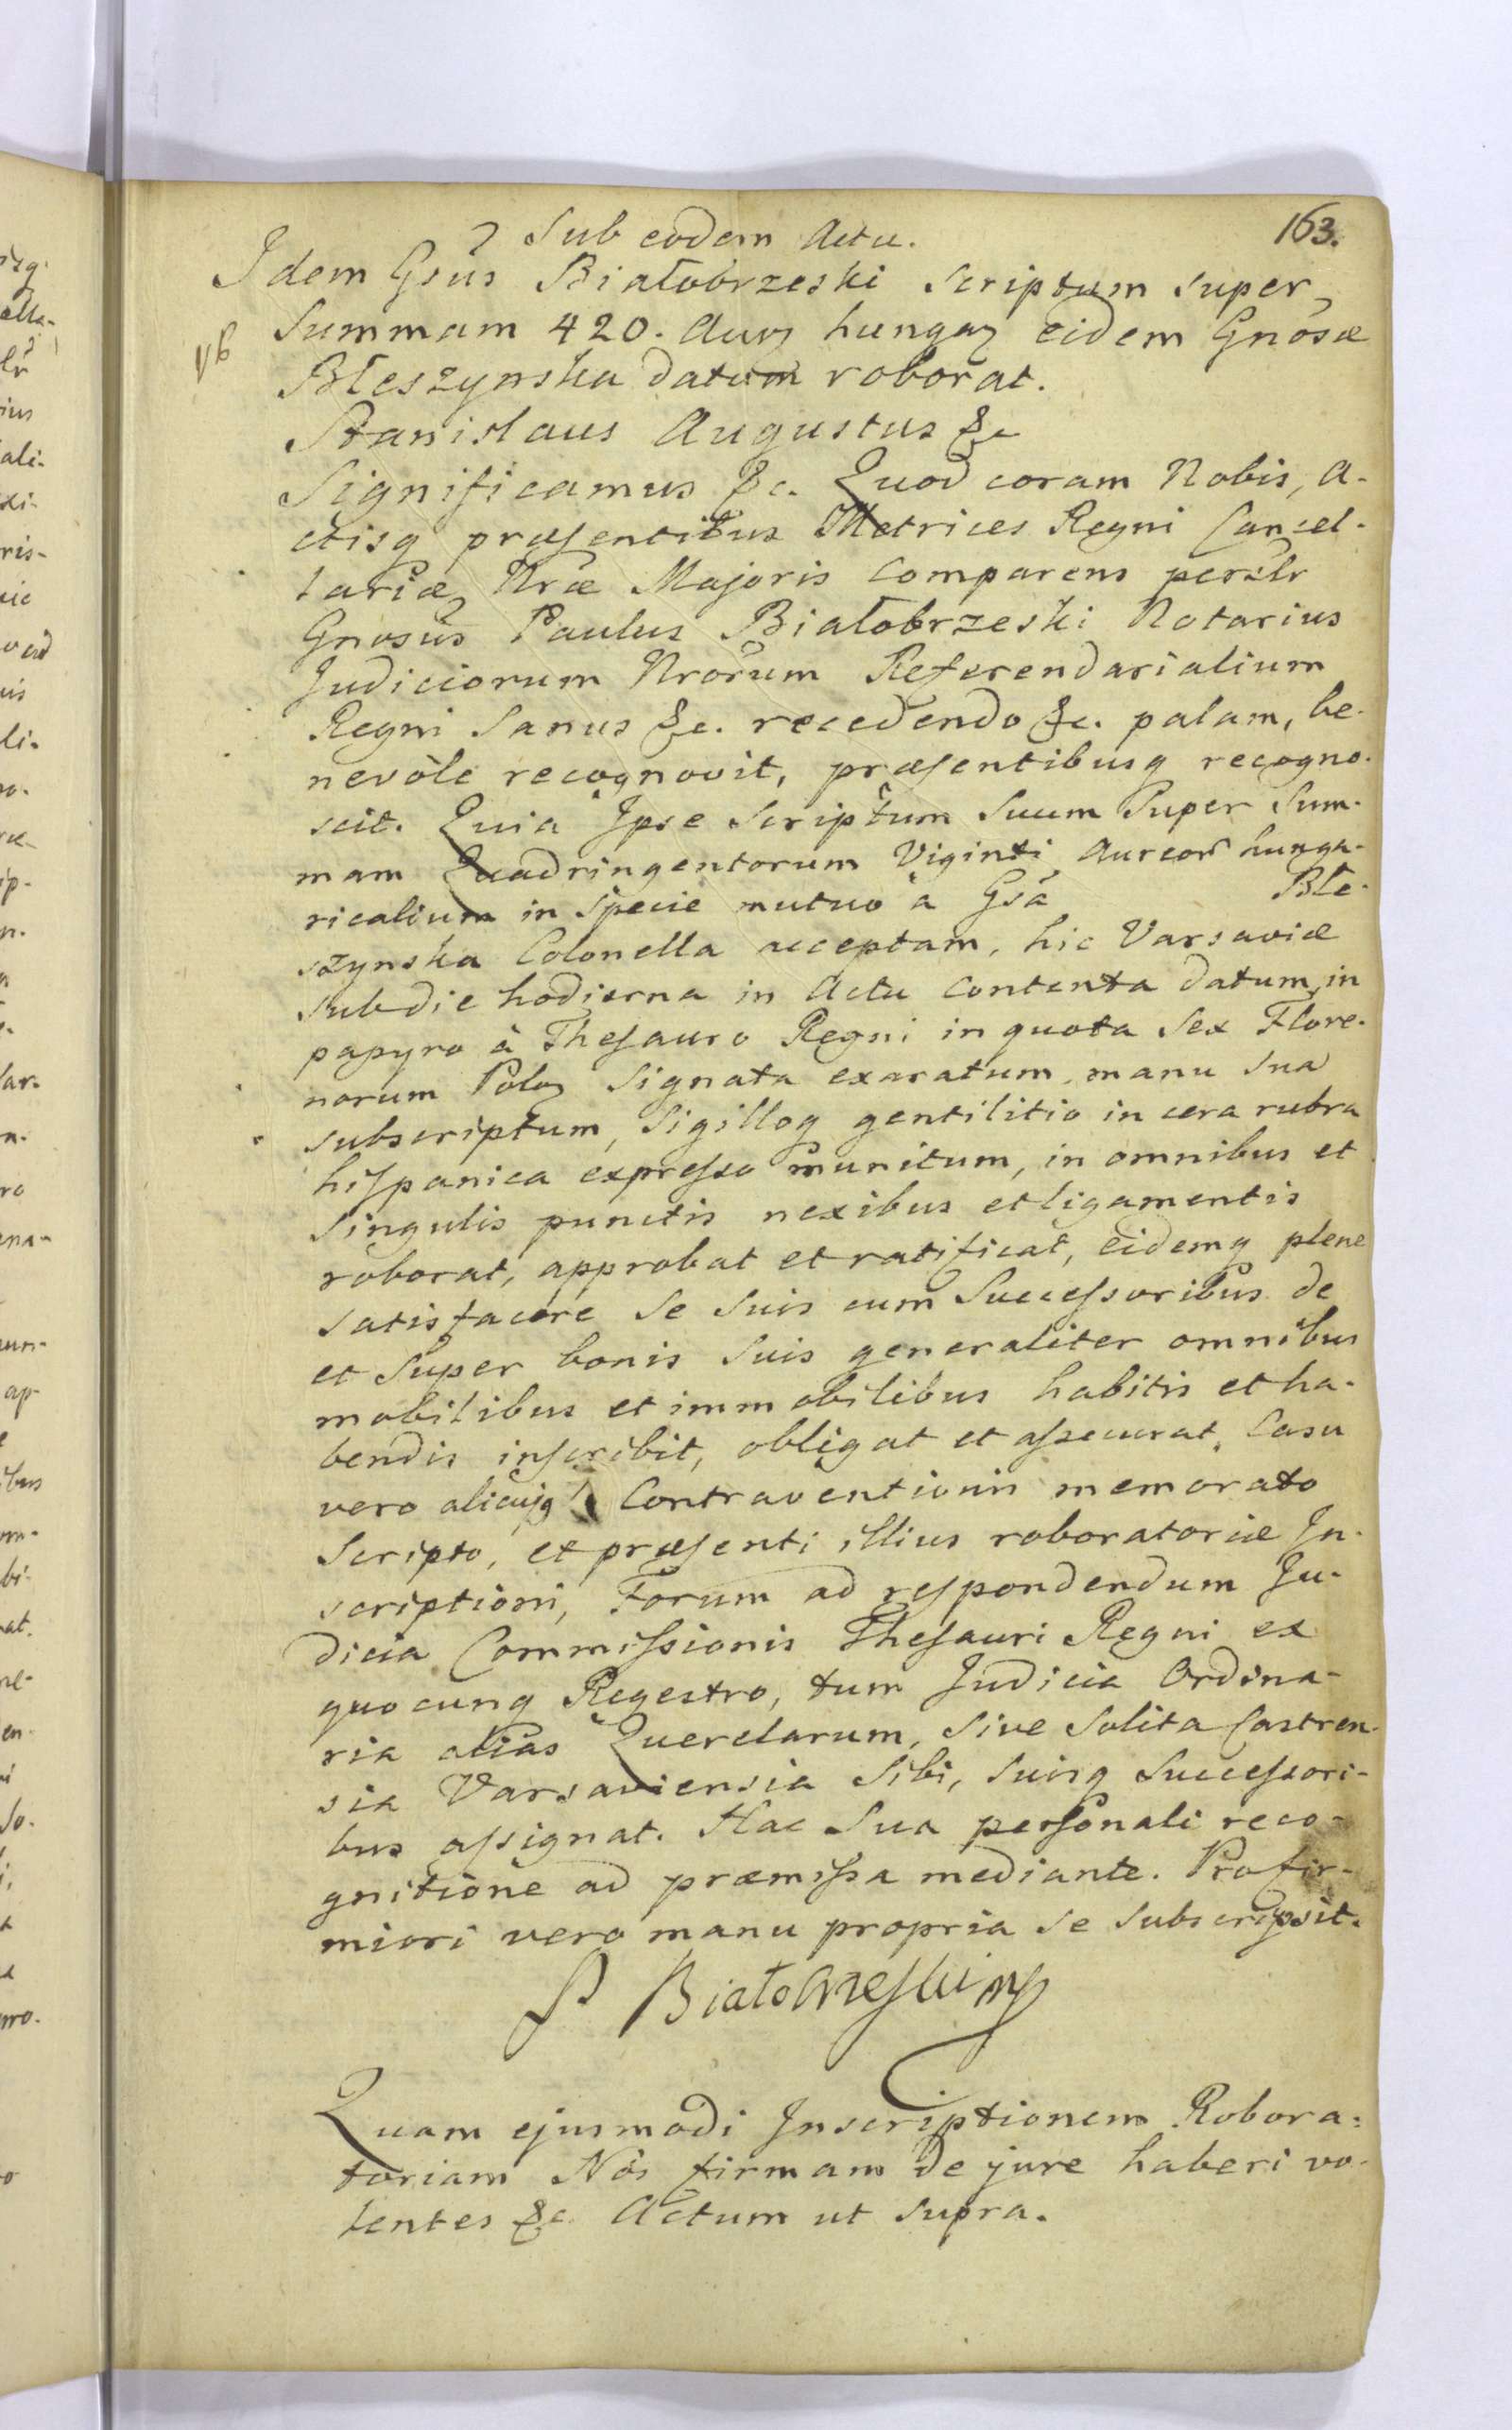 163.
Sub eodem Actu.
Idem Gsus Białobrzeski Scriptum super
Summam 420. Aurz hungaz eidem Gnosæ
Błeszynska datum roborat.
Stanislaus Augustus &c
Significamus &c. Quod coram Nobis, A-
ctisq præsentibus Metrices Regni Cancel-
lariæ Nræ Majoris Comparens persłr
Gnosus Paulus Białobrzeski Notarius
Judiciorum Nrorum Referendarialium
Regni Sanus &c. recedendo &c. palam, be-
nevole recognovit, præsentibusq recogno-
scit. Quia Ipse Scriptum Suum Super Sum-
mam Quadringentorum Viginti Aureor hunga-
ricalium in Specie mutuo à Gsa Błe-
szynska Colonella acceptam, hic Varsaviæ
sub die hodierna in Actu Contenta datum, in
papyro à Thesauro Regni in quota Sex Flore-
norum Poloz Signata exaratum, manu Sua
subscriptum, Sigilloq gentilitio in cera rubra
hispanica expresso munitum, in omnibus et
Singulis punctis nexibus et ligamentis
roborat, approbat et ratificat, eidemq plene
satisfacere Se Suis cum Successoribus de
et Super bonis Suis generaliter omnibus
mobilibus et immobilibus habitis et ha-
bendis inscribit, obligat et assecurat. Casu
vero alicujq Contraventionis memorato
Scripto, et præsenti illius roboratoriæ In-
scriptioni, Forum ad respondendum Ju-
dicia Commissionis Thesauri Regni ex
quocunq Regestro, tum Judicia Ordina-
ria alias Querelarum, Sive Solita Castren-
sia Varsaviensia Sibi, Suisq Successori-
bus assignat. Hac Sua personali reco-
gnitione ad præmissa mediante. Pro fir-
miori vero manu propria Se Subscripsit.
P Białobrzeski mp
Quam ejusmodi Inscriptionem Robora-
toriam Nos firmam de jure haberi vo-
lentes &c. Actum ut Supra.